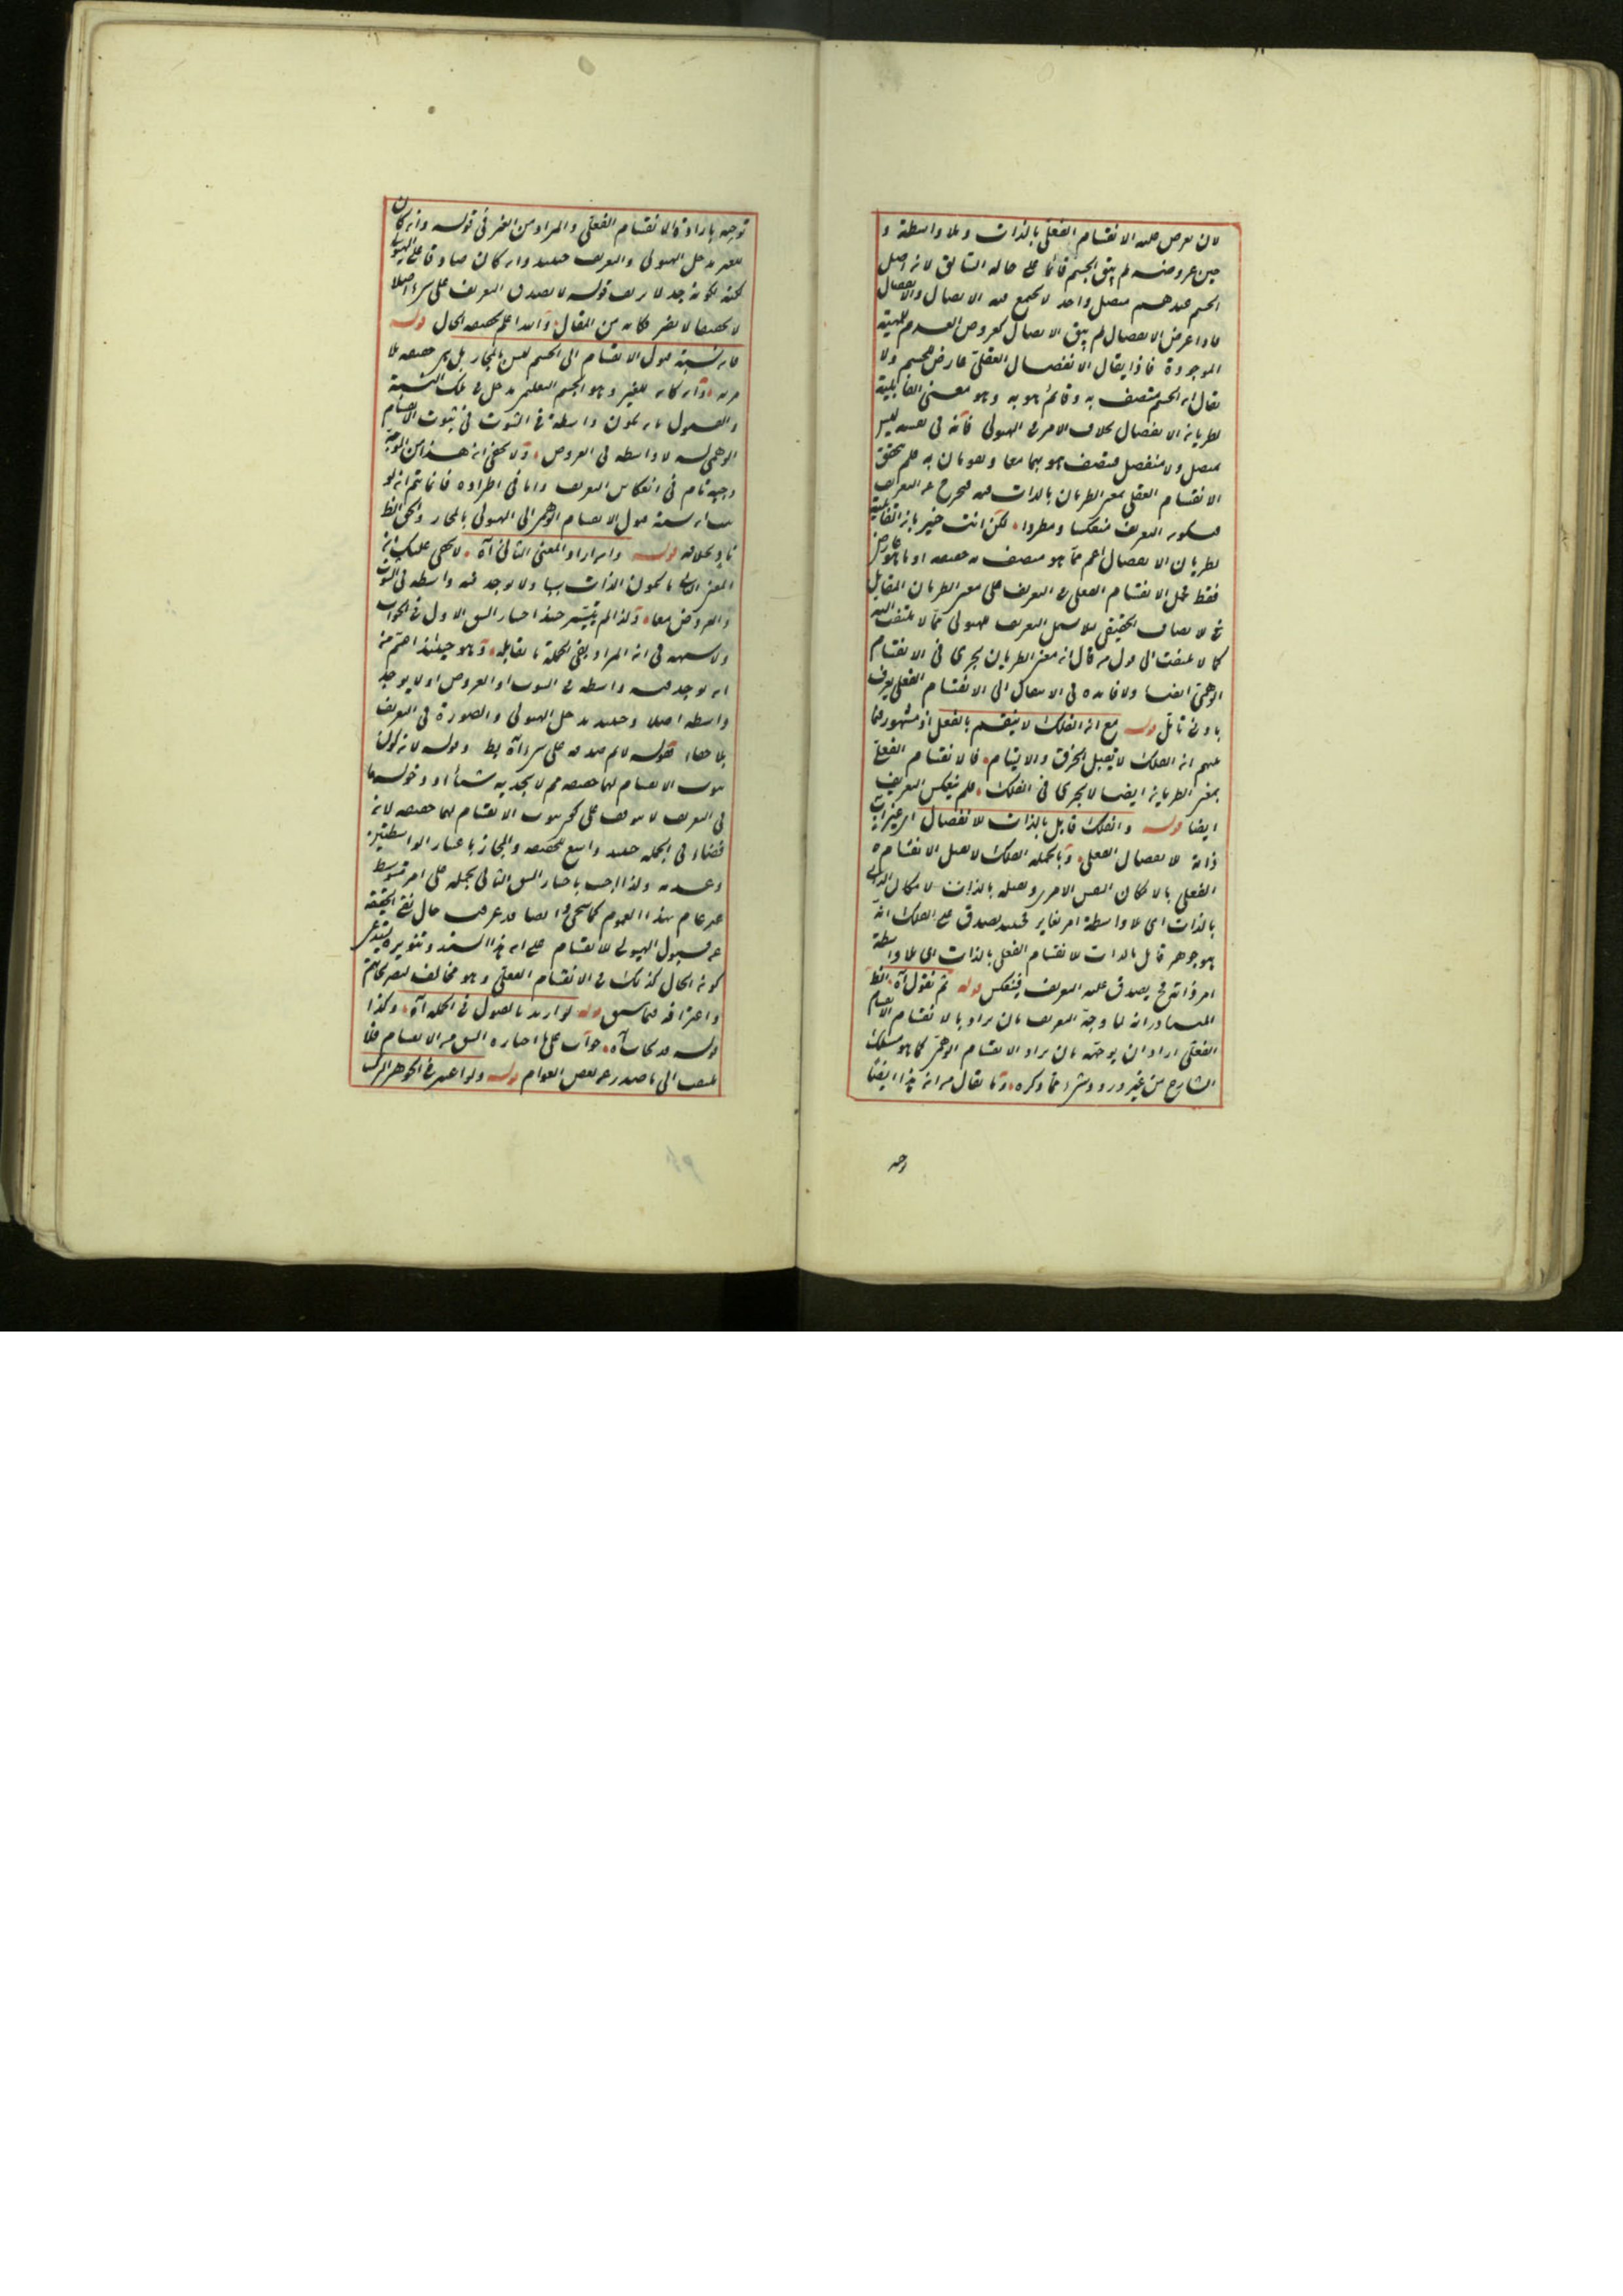 لان يعرض عليه الانقسام الفعلي بالذات وبلا واسطة و
حين عروضه لم يبق الجسم قائما على حاله السابق لانه اصل
الجسم عندهم متصل واحد لا يجمع فيه الاتصال والانفصال
فاذا عرض الانفصال لم يبق الاتصال كعروض العدم للهيئة
الموجودة فاذا يقال الانفصال الفعلي عارض للجسم ولا
يقال انه الجسم متصف به وقائم هو به وهو معنى القابلية
لطريانه الانفصال بخلاف الامر في الهيولى فانه في نفسه ليس
بمتصل ولا منفصل فيتصف هو بهما معا ويقومان به فلم يتحقق
الانقسام الفعلي بمعنى الطريان بالذات فيه فيخرج عن التعريف
فيكون التعريف منعكسا ومطردا لكن انت خبير بان القابلية
لطريان الانفصال اعم مما هو متصف به حقيقة او ما هو عارض
فقط فحمل الانقسام الفعلي في التعريف على معنى الطريان المقابل
الاتصاف الحقيقي لئلا يشمل التعريف هيولى مما لا يلتفت اليه
كما لا يلتفت الى قول من قال انه معنى الطريان يجرى في الانقسام
الوهمي ايضا ولا فائدة في الانتقال الى الانقسام الفعلي يعرف
بادنى تامل قوله مع انه الفلك لا ينقسم بالفعل اذ مشهور فيما
بينهم انه الفلك لا يقبل الخرق والالتيام فالانقسام الفعلي
بمعنى الطريانه ايضا لا يجرى في الفلك فلم ينعكس التعريف
ايضا قوله والفلك قابل بالذات للانفصال
ذاته الانفصال الفعلي وبالجملة الفلك لا يقبل الانقسام
الفعلي بالامكان النفس الامرى ويقبله بالذات لامكان الذاتي
بالذات اى بلا واسطة امر مغاير فحينئذ يصدق على الفلك انه
هو جوهر قابل بالذات للانقسام الفعلي بالذات اى بلا واسطة
امر ذاتي فح يصدق عليه التعريف فينعكس قوله ثم نقول آه الظ
المتبادر انه لما وجه التعريف بان يراد بالانقسام الانقسام
الفعلي اراد ان يوجهه بان يراد الانقسام الوهمي كما هو مسلك
الشارح من غير ورود شىء مما ذكره وما يقال من انه هذا ايضا
وجه
توجيه بارادة الانقسام الفعلي والمراد من الغير في قوله وانه كان
للغير مدخل الهيولى والتعريف حينئذ وان كان صادقا على الهيولى
لكنه لكونه جدلا يريف قوله لا يصدق التعريف على شىء اصلا
لا تحقيقا لا يضر فكانه من المقال والله اعلم بحقيقة الحال قوله
فانه نسبة قبول الانقسام الى الجسم ليس بالمجاز بل هى حقيقة بلا
مرية وانه كانه للغير وهو الجسم التعليمي مدخل في تلك النسبة
والقبول بانه يكون واسطة في الثبوت في ثبوت الانقسام
الوهمي له لا واسطة في العروض ولا يخفى انه هذا من الوجه
وجيه تام في انعكاس التعريف واما في اطراده فانما يتم انه لو
ثبت انه نسبة قبول الانقسام الوهمي الى الهيولى بالمجاز والحق الظ
بخلافه قوله وانه اراد المعنى الثاني آه لا يخفى عليك انه
المعنى الثاني ما يكون الذات سببا ولا يوجد فيه واسطة في الثبوت
والعروض معا ولذا لم يتيسر حينئذ اختيار الشق الاول في الجواب
ولا شبهة في انه المراد بفي الجملة ما يقابله وهو حينئذ اعم من
انه يوجد فيه واسطة في الثبوت او العروض او لا يوجد
واسطة اصلا وحينئذ يدخل الهيولى والصورة في التعريف
بلا خفاء فقوله لانم صدقه على شىء آه بط وقوله لانه كون
ثبوت الانقسام لهما حقيقة مم لا يجديه شيئا اذ دخولهما
في التعريف لا يتوقف على كون ثبوت الانقسام لهما حقيقة لانه
فضاء في الجملة حينئذ واسع للحقيقة والمجاز باعتبار الواسطتين
وعدمه ولذا اجيب باختيار الشق الثاني بحمله على امر متوسط
غير عام بهذا العموم كما سيجى وايضا قد عرفت حال نفى الحقيقة
عن قبول الهيولى للانقسام على انه هذا السند وتنويره يستدعى
كونه الحال كذلك في الانقسام الفعلي وهو مخالف لتصريحاتهم
واعترافه فيما سبق قوله لو اريد بالقبول في الجملة آه وكذا
قوله قد يجاب آه جواب على اختياره الشق من الانقسام فلا
يلتفت الى ما صدر عن بعض العوام قوله ولو اعتبر في الجوهر المركب